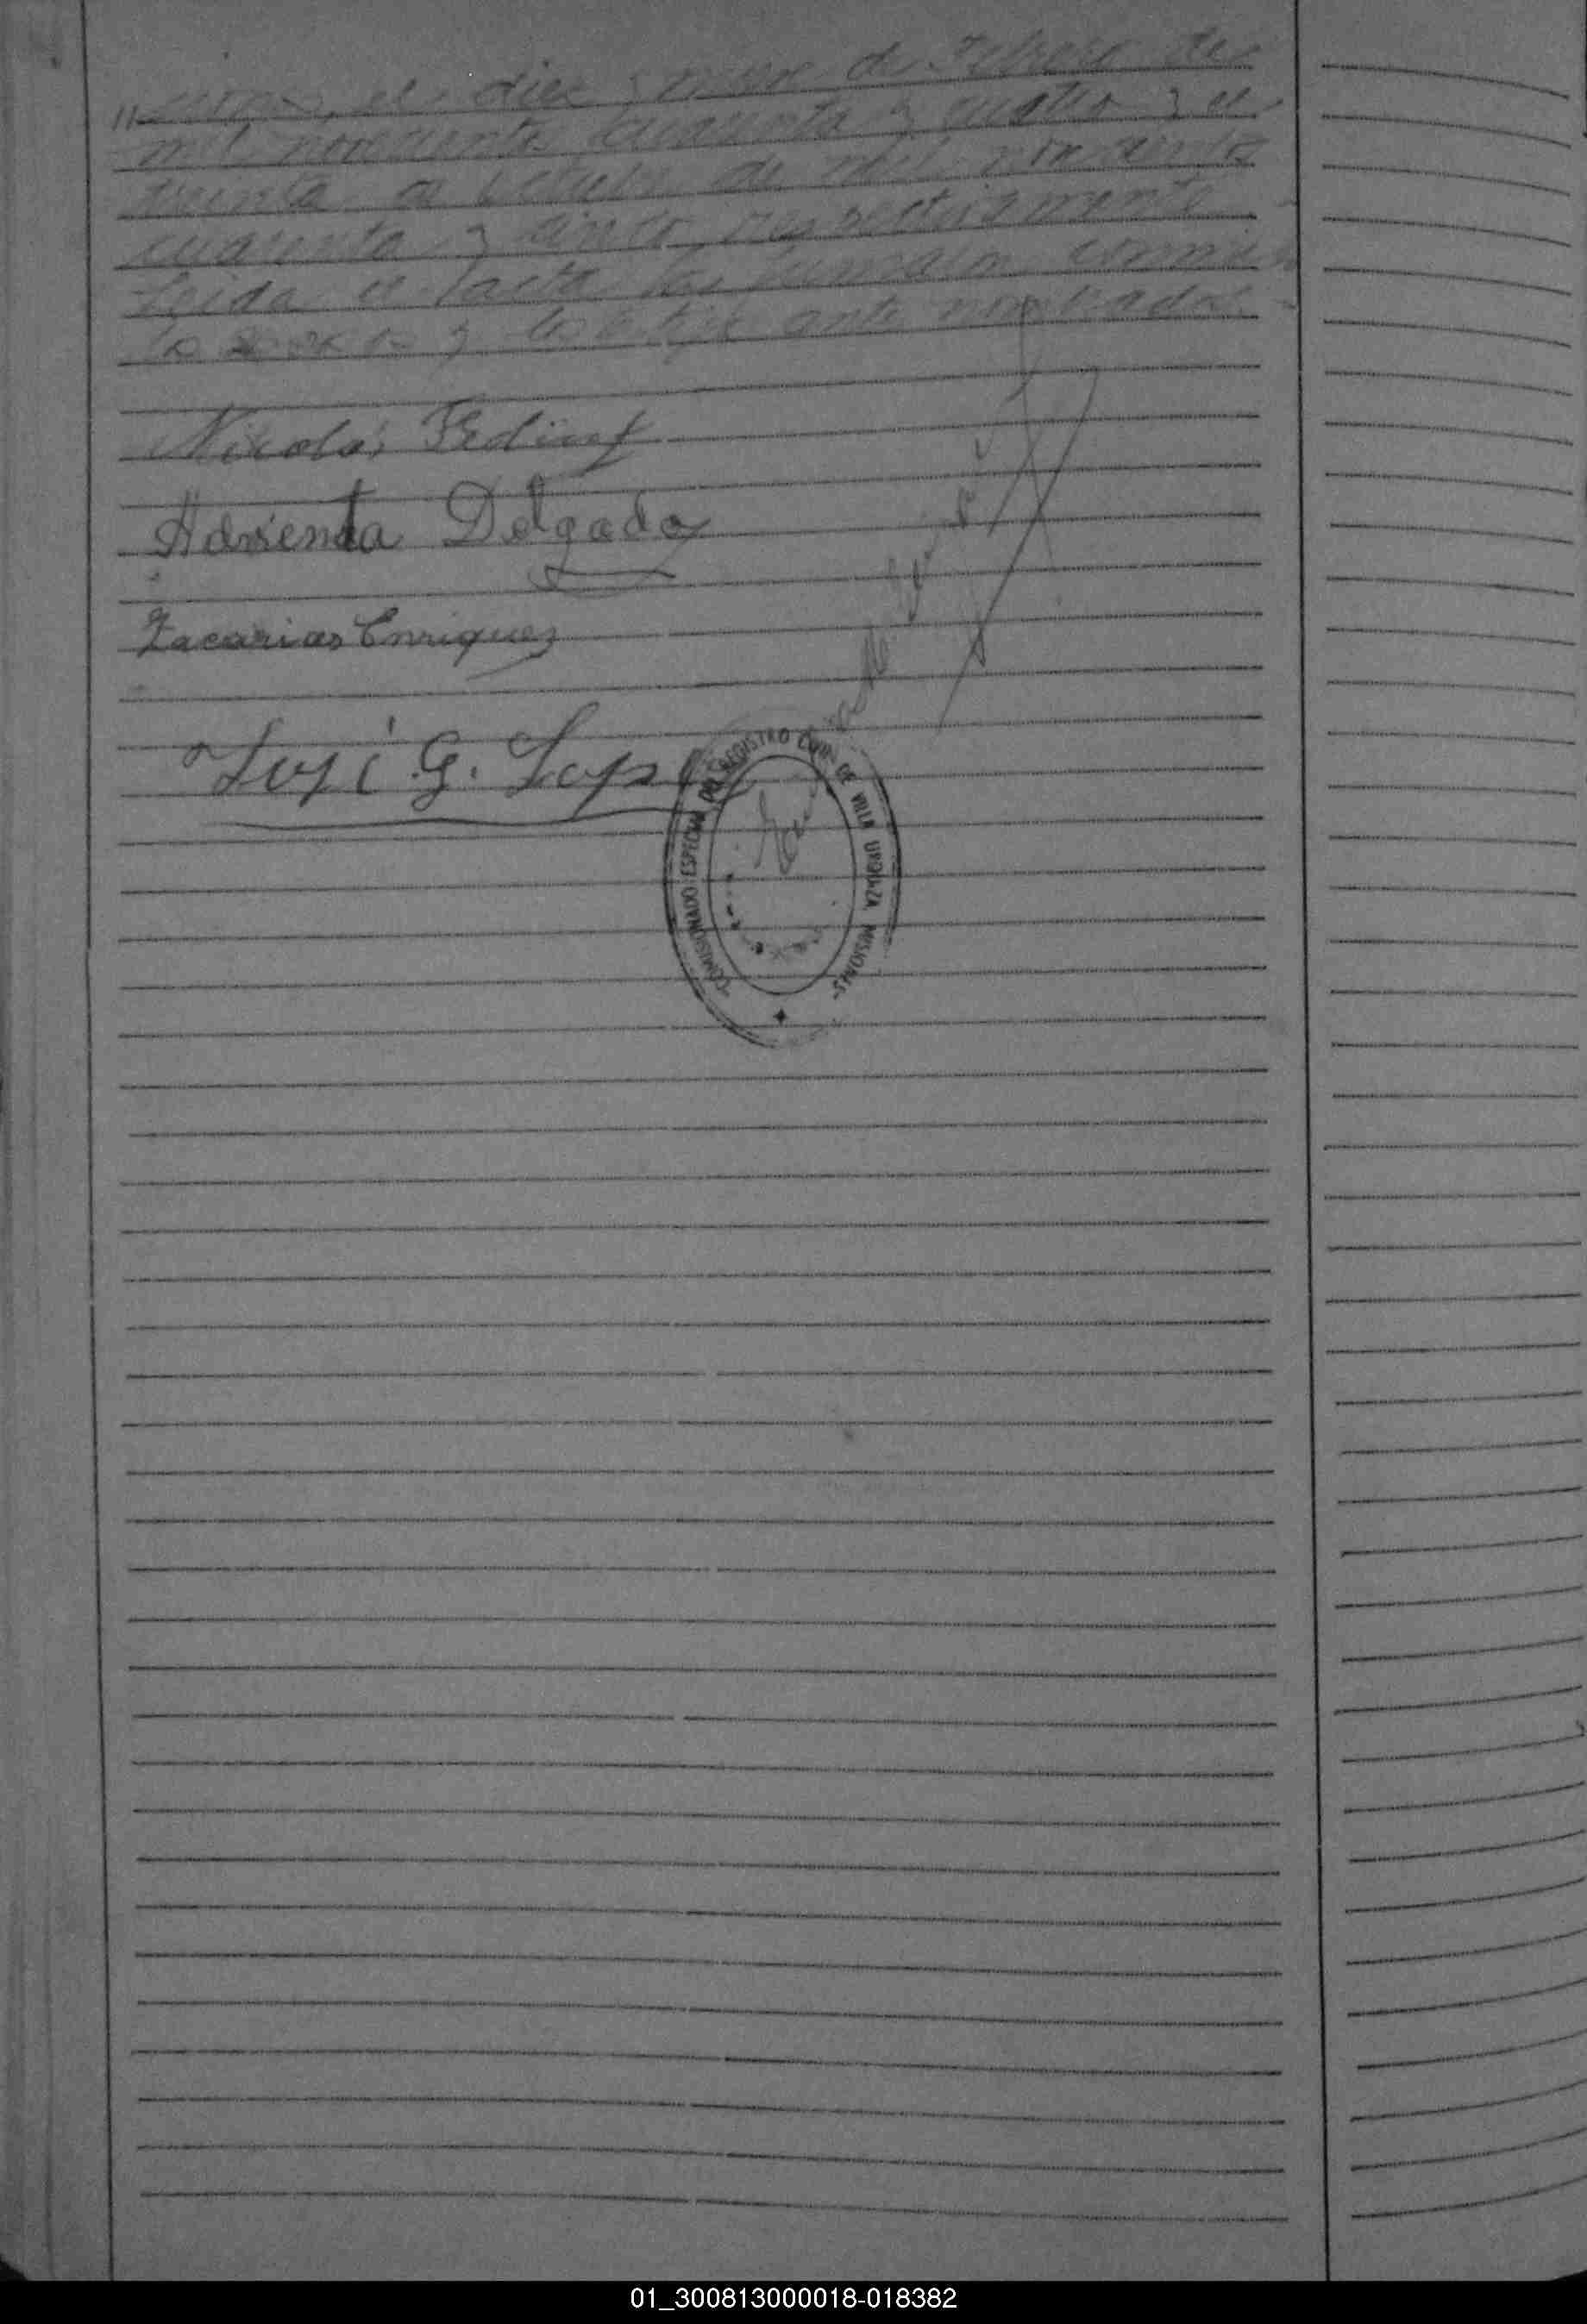 el diez y nueve de Febrero de
mil novecientos cuarenta y cuatro y el
treinta de Octubre de mil novecientos
cuarenta y cinco, respectivamente
Leida el acta las firmaron conmi
go y los testigos antes nombrados
Nicolás
Adorienda Delgado
Zacarias Enriquez
José G. Lopez
COMISIONADO ESPECIAL DEL REGISTRO CIVIL DE VILLA URQUIZA MISIONES
01_300813000018-018382